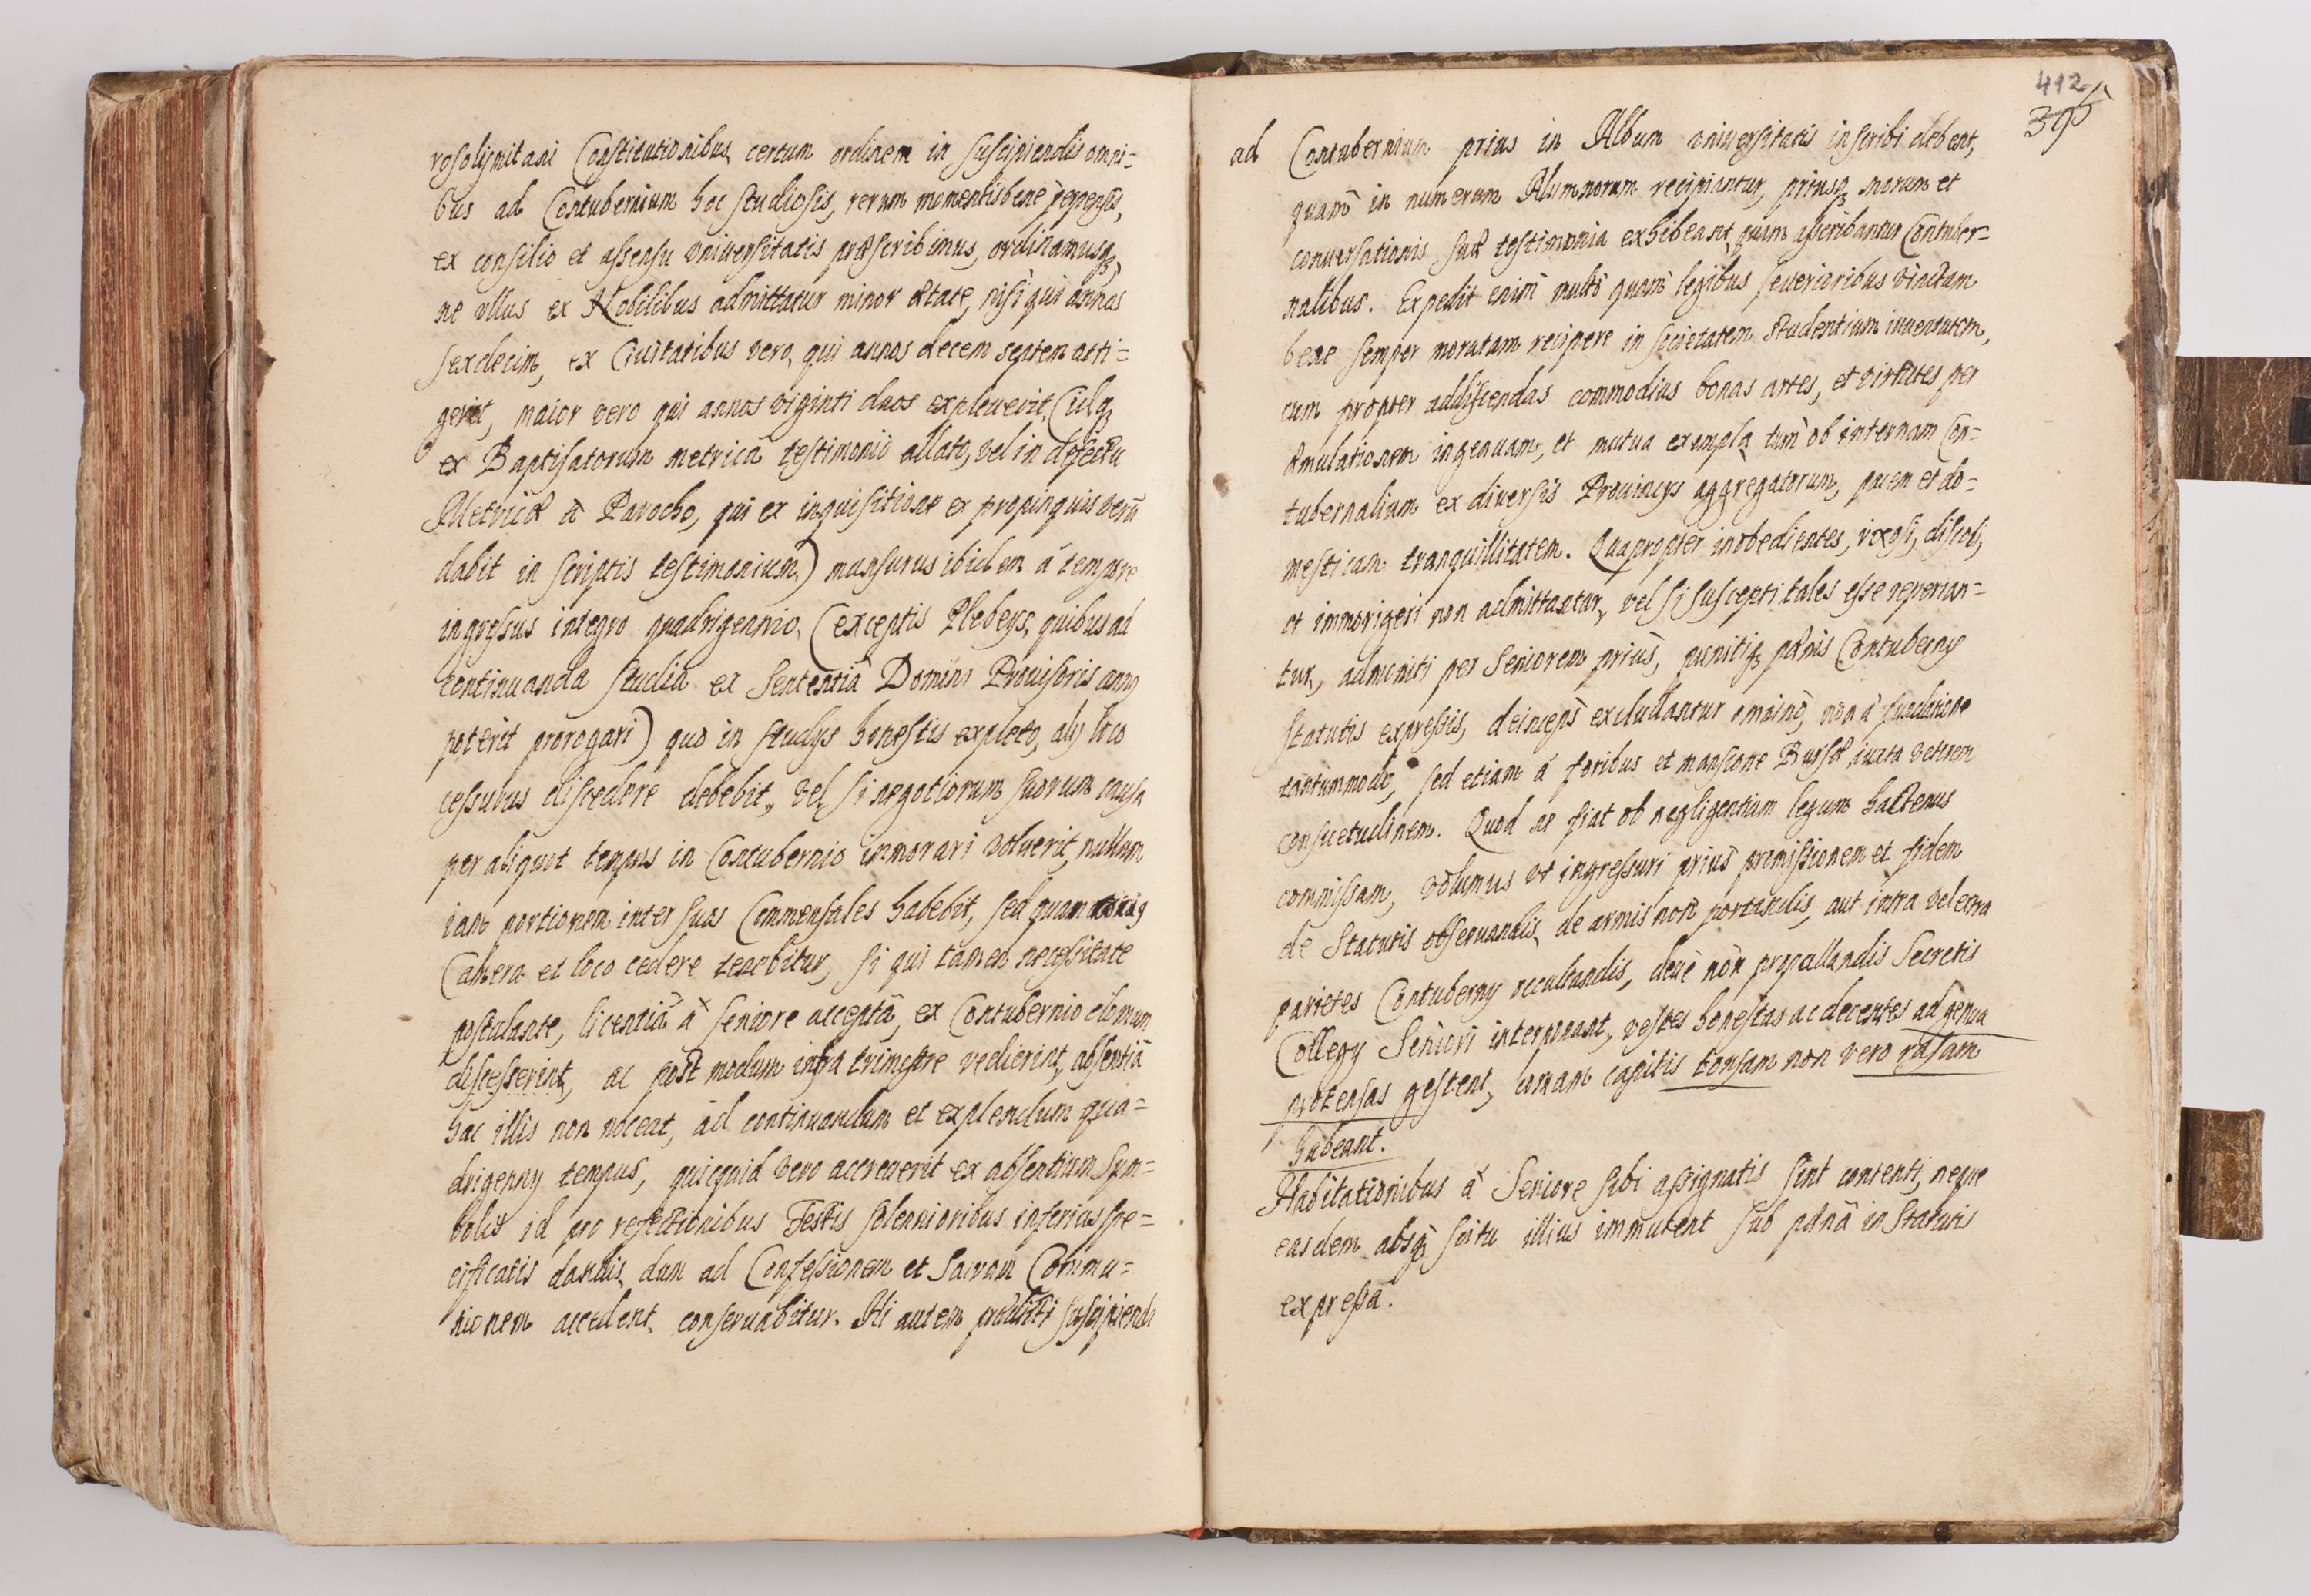 rosolymitani Constitutionibus, certum ordinem in suscipiendis omni=
bus ad Contubernium hoc studiosis, rerum momentis bene perpensis,
ex consilio et assensu Vniuersitatis præscribimus, ordinamusq;,
ne vllus ex Nobilibus admittatur minor ætate, nisi qui annos
sexdecim, ex Ciuitatibus vero, qui annos decem septem atti=
gerit, maior vero qui annos viginti duos expleuerit, (idq;
ex Baptisatorum metrica testimonio allato, vel in defectu
Metricæ à Parocho, qui ex inquisitione ex propinquis verū
dabit in scriptis testimonium) mansurus ibidem à tempore
ingressus integro quadriennio, (exceptis Plebeys, quibus ad
continuanda studia ex Sententiâ Domini Prouisoris anny
poterit prorogari) quo in studys honestis expleto, alij loco
cessurus discedere debebit, vel si negotiorum suorum causa
per aliquot tempus in Contubernio immorari voluerit, nullam
iam portionem inter suos Commensales habebit, sed quam
Camera et loco cedere tenebitur, si qui tamen necessitate
postulante, licentiâ à seniore acceptâ, ex Contubernio domum
discesserint, ac post modum infra trimestre redierint, absentiâ
hac illis non noceat, ad continuandum et explendum qua=
drigenny tempus, quicquid vero accreuerit ex absentium Sym=
bolis id pro refectionibus Festis solennioribus inferius spe=
cificatis dandis, dum ad Confessionem et Sacram Commu=
nionem accedent, conseruabitur. Hi autem prædicti suscipiendi
412
395
ad Contubernium prius in Album vniuersitatis inscribi debent,
quam in numerum Alumnorum recipiantur, priusq; morum et
conuersationis suæ testimonia exhibeant, quam asscribantur Contuber=
nalibus. Expedit enim multo quam legibus seuerioribus vinctam
bene semper moratam recipere in societatem studentium iuuentutem,
cum propter addiscendas commodius bonas artes, et virtutes per
æmulationem ingenuam, et mutua exempla tum ob internam Con=
tubernalium ex diuersis Prouincys aggregatorum, pacem et do=
mesticam tranquillitatem. Quapropter inobedientes, rixosi, discoli,
et immorigeri non admittantur, vel si suscepti tales esse reperian=
tur, admoniti per Seniorem prius, punitiq; pænis Contuberny
statutis expressis, deinceps excludantur omninò, non à fundatione
tantummodo, sed etiam à foribus et mansione Bursæ iuxta veterem
consuetudinem. Quod ne fiat ob negligentiam legum hactenus
commissam, volumus vt ingressuri prius promissionem et fidem
de Statutis obseruandis, de armis non portandis, aut intra vel extra
parietes Contuberny occultandis, deq; non propallandis Secretis
Collegy Seniori interponant, vestes honestas ac decentes ad genua
protensas gestent, comam capitis tonsam non vero rasam
habeant.
Habitationibus à Seniore sibi assignatis sint contenti, neque
easdem absq; scitu illius immutent sub pænâ in Statutis
expressa.